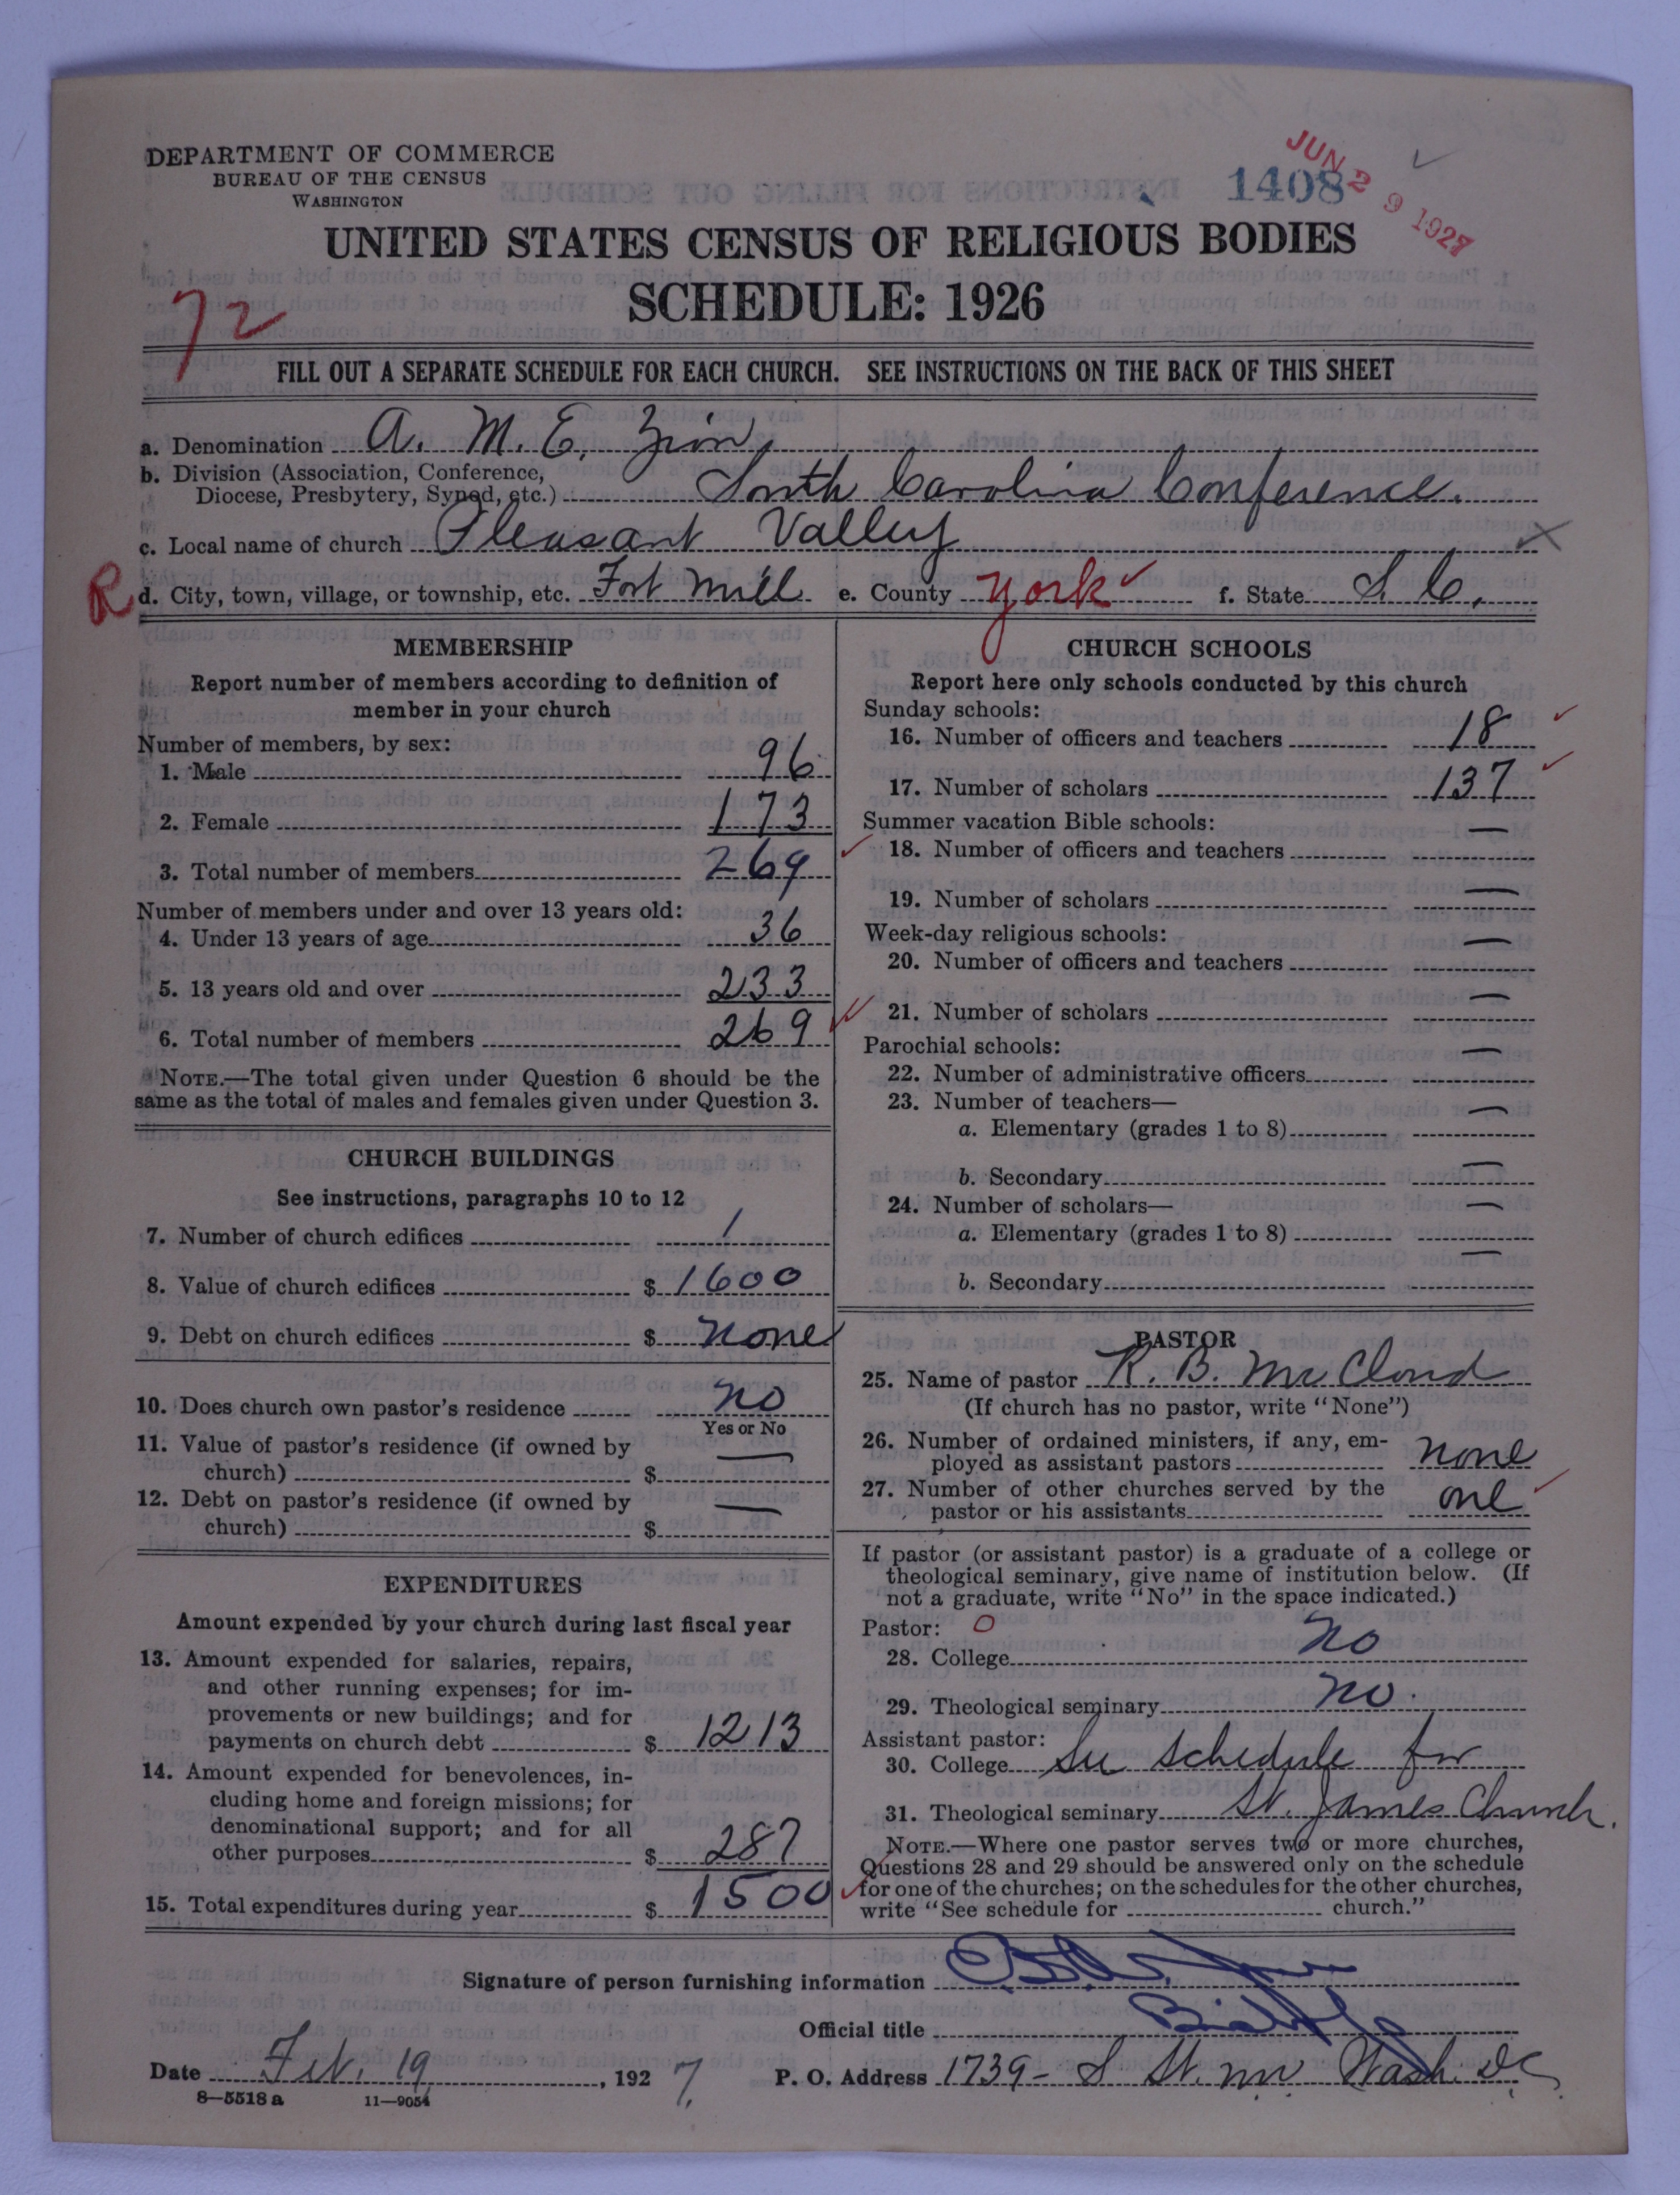 DEPARTMENT OF COMMERCE
BUREAU OF THE CENSUS
WASHINGTON
1408
JUN 29 1927
UNITED STATES CENSUS OF RELIGIOUS BODIES
SCHEDULE: 1926
72
FILL OUT A SEPARATE SCHEDULE FOR EACH CHURCH. SEE INSTRUCTIONS ON THE BACK OF THIS SHEET
a. Denomination A. M. E. Zion,
b. Division (Association, Conference,
Diocese, Presbytery, Synod, etc.) South Carolina Conference.
c. Local name of church Pleasant Valley
R d. City, town, village, or township, etc. Fort Mill e. County York f. State S. C.
MEMBERSHIP
Report number of members according to definition of
member in your church
Number of members, by sex:
1. Male 96
2. Female 173
3. Total number of members 269
Number of members under and over 13 years old:
4. Under 13 years of age 36
5. 13 years old and over 233
6. Total number of members 269
NOTE.—The total given under Question 6 should be the
same as the total of males and females given under Question 3.
CHURCH BUILDINGS
See instructions, paragraphs 10 to 12
7. Number of church edifices 1
8. Value of church edifices $ 1600
9. Debt on church edifices $ none
10. Does church own pastor's residence no
Yes or No
11. Value of pastor's residence (if owned by
church) $ —
12. Debt on pastor's residence (if owned by
church) $ —
EXPENDITURES
Amount expended by your church during last fiscal year
13. Amount expended for salaries, repairs,
and other running expenses; for im-
provements or new buildings; and for
payments on church debt $ 1213
14. Amount expended for benevolences, in-
cluding home and foreign missions; for
denominational support; and for all
other purposes $ 287
15. Total expenditures during year $ 1500
CHURCH SCHOOLS
Report here only schools conducted by this church
Sunday schools:
16. Number of officers and teachers 18
17. Number of scholars 137
Summer vacation Bible schools:
18. Number of officers and teachers —
19. Number of scholars —
Week-day religious schools:
20. Number of officers and teachers —
21. Number of scholars —
Parochial schools:
22. Number of administrative officers —
23. Number of teachers—
a. Elementary (grades 1 to 8) —
b. Secondary —
24. Number of scholars—
a. Elementary (grades 1 to 8) —
b. Secondary —
PASTOR
25. Name of pastor R. B. McCloud
(If church has no pastor, write "None")
26. Number of ordained ministers, if any, em-
ployed as assistant pastors none
27. Number of other churches served by the
pastor or his assistants one
If pastor (or assistant pastor) is a graduate of a college or
theological seminary, give name of institution below. (If
not a graduate, write "No" in the space indicated.)
Pastor: O
28. College no
29. Theological seminary no.
Assistant pastor:
30. College See schedule for
31. Theological seminary St. James Church.
NOTE.—Where one pastor serves two or more churches,
Questions 28 and 29 should be answered only on the schedule
for one of the churches; on the schedules for the other churches,
write "See schedule for church."
Signature of person furnishing information
Official title Bishop
Date Feb. 19, 1927. P. O. Address 1739- S St. nw Wash. D.C.
8—5518 a 11—9054